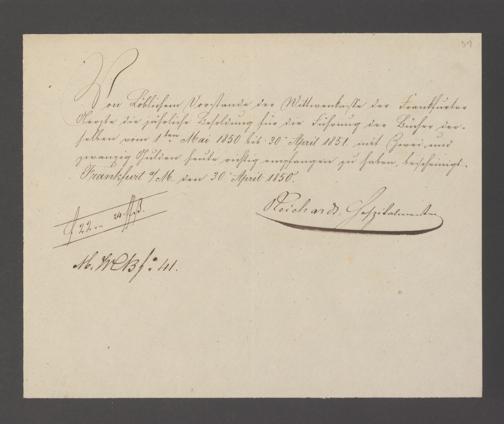 39
Von Löblichem Vorstande der Wittwenkasse der Frankfurter
Aerzte die jährliche Besoldung für die Führung der Bücher der-
selben vom 1ten Mai 1850 bis 30 April 1851 mit Zwei und
zwanzig Gulden heute richtig empfangen zu haben, bescheinigt.
Frankfurt a/M. den 30 April 1850.
f 22
Reichard, Hospitalmeister
41.